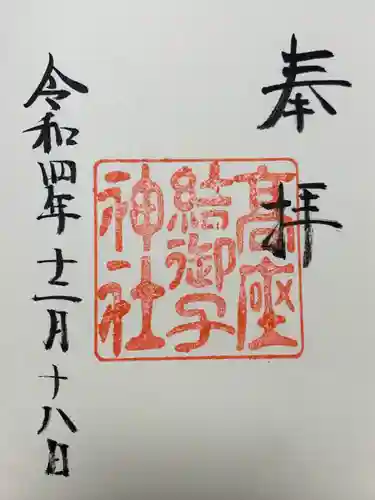 奉拝
髙座
結御子
神社
令和四年十一月十八日